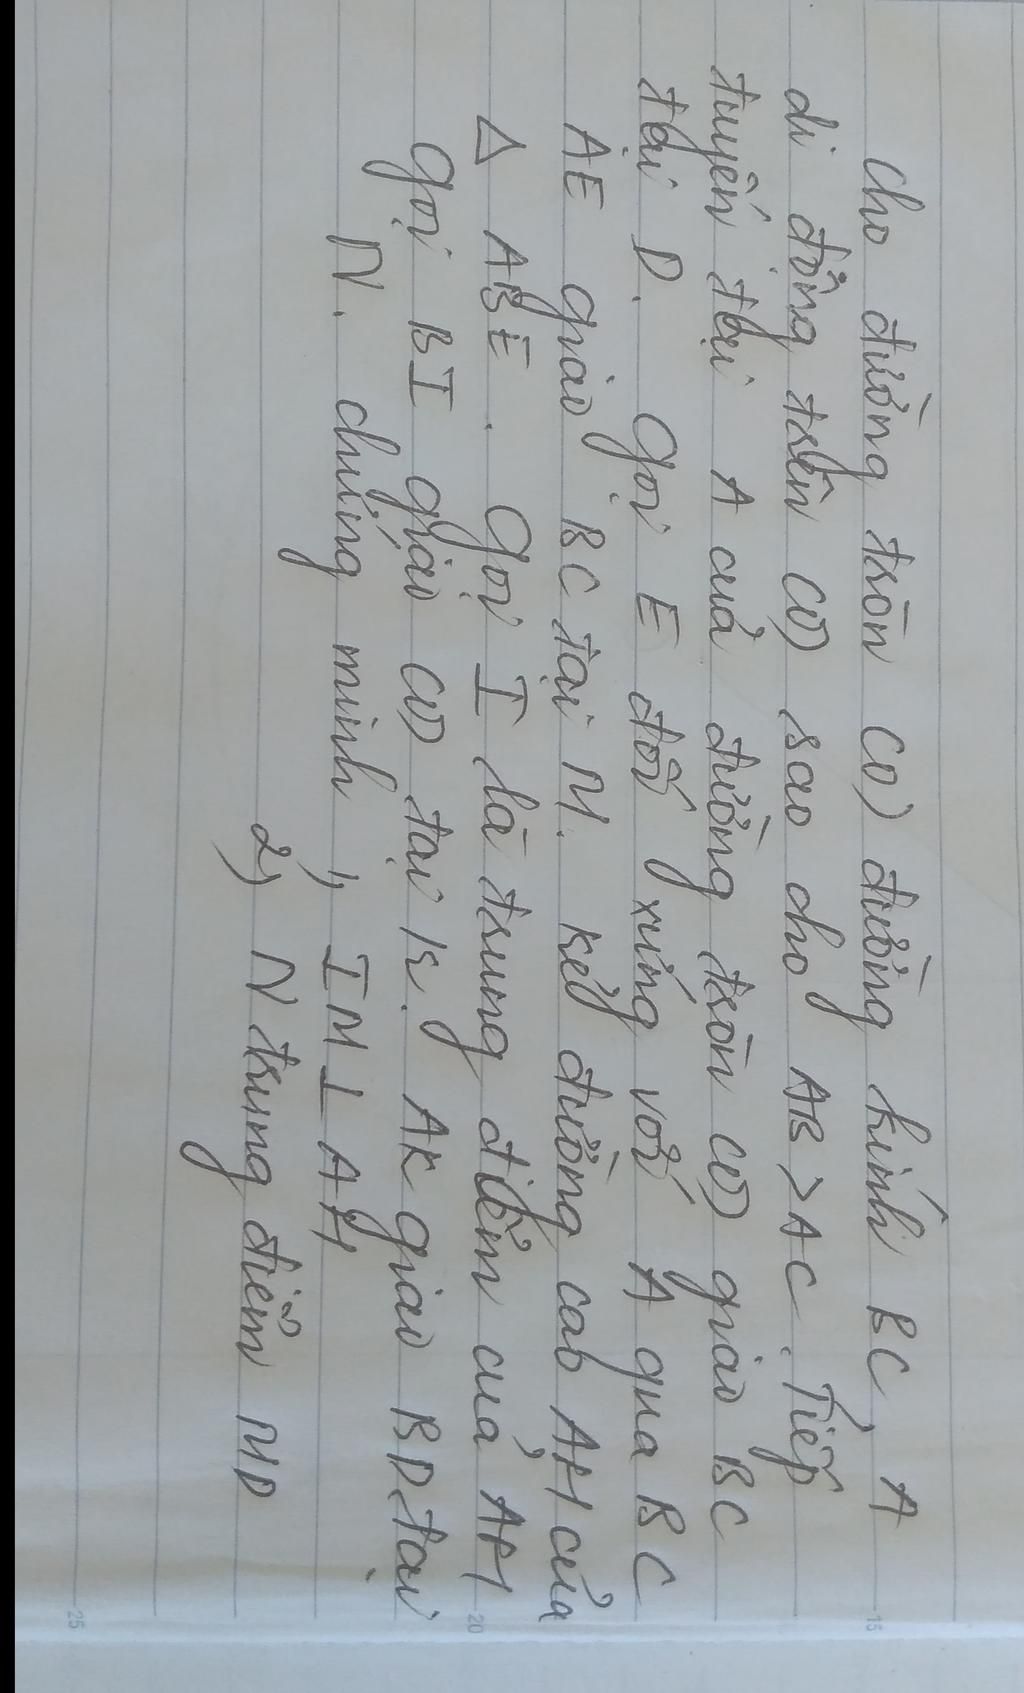 Cho đường tròn (O) đường kính BC, A
di động trên (O) sao cho AB > AC. Tiếp
tuyến tại A của đường tròn (O) giao BC
tại D. Gọi E đối xứng với A qua BC
AE giao BC tại M. Kẻ đường cao AH của
Δ ABE. Gọi I là trung điểm của AH
Gọi BI giao (O) tại K. AK giao BD tại
N. chứng minh 1, IM ⊥ AH
2, N trung điểm MD
15
20
25